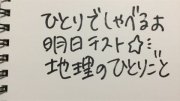 ひとりでしゃべるお
明日テスト☆ミ
地理のひとりごと